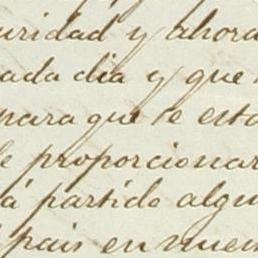 uridad y ahora
ada dia y que
para que te esta
e proporcionar
á partido algu
pais en nues